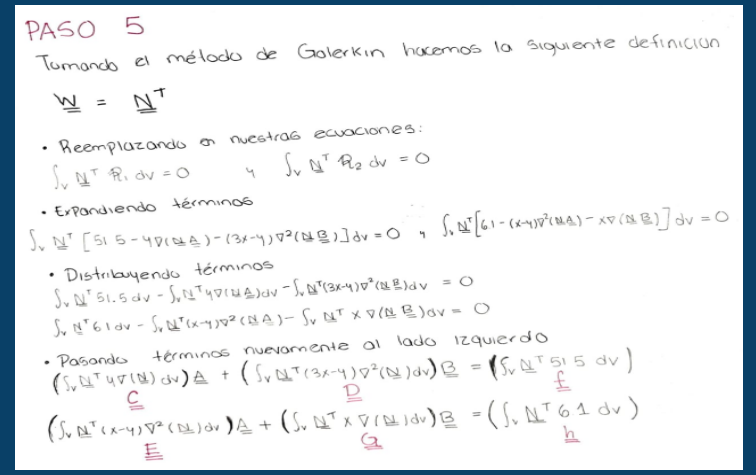 PASO 5
Tomando el método de Galerkin hacemos la siguiente definición
W = N^T
• Reemplazando en nuestras ecuaciones:
∫_V N^T R₁ dv = 0 y ∫_V N^T R₂ dv = 0
• Expandiendo términos
∫_V N^T [51.5 - y∇(N A) - (3x-y)∇²(N B)] dv = 0 y ∫_V N^T [61 - (x-y)∇²(N A) - x∇(N B)] dv = 0
• Distribuyendo términos
∫_V N^T 51.5 dv - ∫_V N^T y∇(N A) dv - ∫_V N^T (3x-y)∇²(N B) dv = 0
∫_V N^T 61 dv - ∫_V N^T (x-y)∇²(N A) - ∫_V N^T x∇(N B) dv = 0
• Pasando términos nuevamente al lado izquierdo
(∫_V N^T y∇(N) dv) A + (∫_V N^T (3x-y)∇²(N) dv) B = (∫_V N^T 51.5 dv)
C D f
(∫_V N^T (x-y)∇²(N) dv) A + (∫_V N^T x∇(N) dv) B = (∫_V N^T 61 dv)
E G h